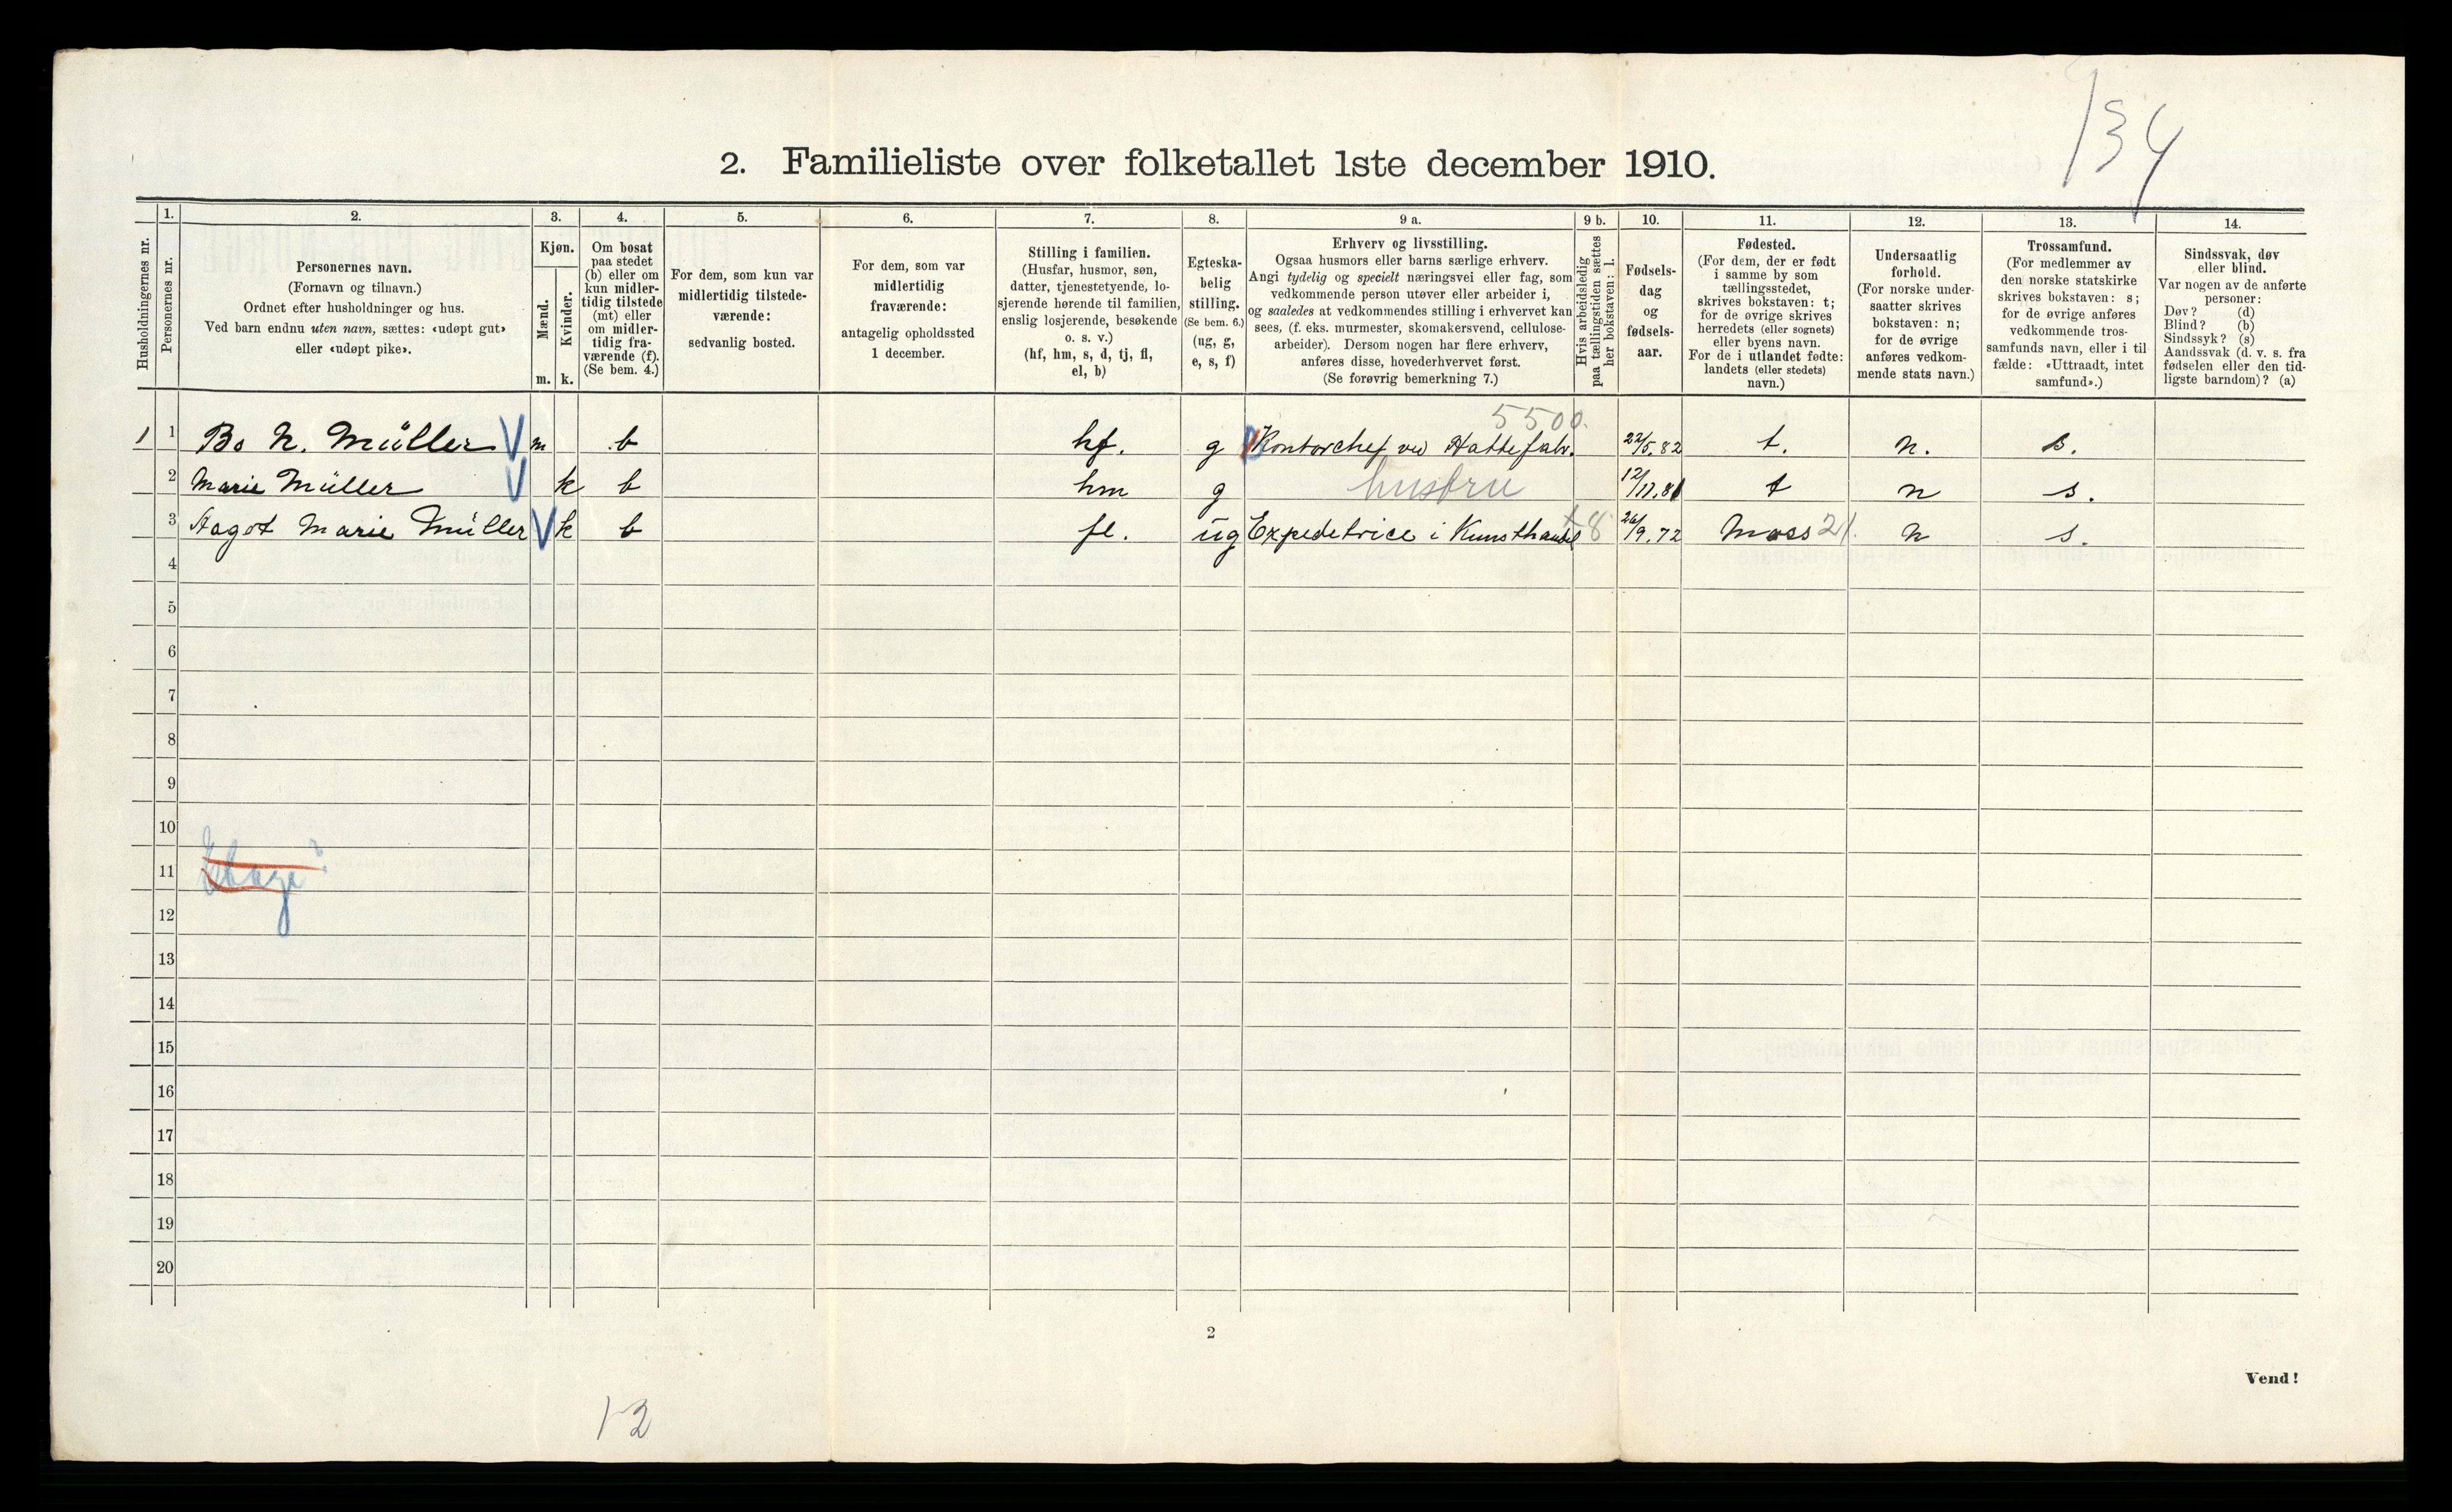 134
2. Familieliste over folketallet 1ste december 1910.
Husholdningernes nr.
1.
Personernes nr.
2.
Personernes navn.
(Fornavn og tilnavn.)
Ordnet efter husholdninger og hus.
Ved barn endnu uten navn, sættes: «udøpt gut»
eller «udøpt pike».
3.
Kjøn.
Mænd.
Kvinder.
m. k.
4.
Om bosat
paa stedet
(b) eller om
kun midler-
tidig tilstede
(mt) eller
om midler-
tidig fra-
værende (f).
(Se bem. 4.)
5.
For dem, som kun var
midlertidig tilstede-
værende:
sedvanlig bosted.
6.
For dem, som var
midlertidig
fraværende:
antagelig opholdssted
1 december.
7.
Stilling i familien.
(Husfar, husmor, søn,
datter, tjenestetyende, lo-
sjerende hørende til familien,
enslig losjerende, besøkende
o. s. v.)
(hf, hm, s, d, tj, fl,
el, b)
8.
Egteska-
belig
stilling.
(Se bem. 6.)
(ug, g,
e, s, f)
9 a.
Erhverv og livsstilling.
Ogsaa husmors eller barns særlige erhverv.
Angi tydelig og specielt næringsvei eller fag, som
vedkommende person utøver eller arbeider i,
og saaledes at vedkommendes stilling i erhvervet kan
sees, (f. eks. murmester, skomakersvend, cellulose-
arbeider). Dersom nogen har flere erhverv,
anføres disse, hovederhvervet først.
(Se forøvrig bemerkning 7.)
9 b.
Hvis arbeidsledig
paa tællingstiden sættes
her bokstaven: l.
10.
Fødsels-
dag
og
fødsels-
aar.
11.
Fødested.
(For dem, der er født
i samme by som
tællingsstedet,
skrives bokstaven: t;
for de øvrige skrives
herredets (eller sognets)
eller byens navn.
For de i utlandet fødte:
landets (eller stedets)
navn.)
12.
Undersaatlig
forhold.
(For norske under-
saatter skrives
bokstaven: n;
for de øvrige
anføres vedkom-
mende stats navn.)
13.
Trossamfund.
(For medlemmer av
den norske statskirke
skrives bokstaven: s;
for de øvrige anføres
vedkommende tros-
samfunds navn, eller i til-
fælde: «Uttraadt, intet
samfund».)
14.
Sindssvak, døv
eller blind.
Var nogen av de anførte
personer:
Døv? (d)
Blind? (b)
Sindssyk? (s)
Aandssvak (d. v. s. fra
fødselen eller den tid-
ligste barndom)? (a)
5500.
1 1 Bo N. Müller V m b hf. g Kontorchef ved Hattefabr. 22/5.82 t. n. s.
2 Marie Müller V k b hm g husfru 12/12.81 t n s.
3 Aagot Marie Müller V k b fl. ug Expeditrice i Kunsthandel t 8 26/9.72 Moss 21. n s.
4
5
6
7
8
9
10
11
12
13
14
15
16
17
18
19
20
2
Vend!
12